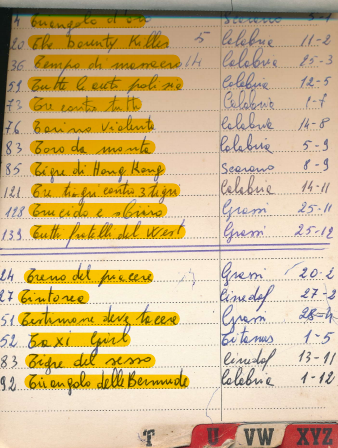 4 Triangolo d'oro Scorano 5-1
20 The Bounty Killer 5 Calabria 11-2
36 Tempo di massacro 14 Calabria 25-3
59 Tutti gli anti polizia Calabria 12-5
73 Tre contro tutti Calabria 1-7
76 Torino violenta Calabria 14-8
83 Toro da monta Calabria 5-9
85 Tigre di Hong Kong Scorano 8-9
121 Tre tigri contro 3 tigri Calabria 14-11
128 Trucido e sbirro Grassi 25-11
139 Tutti fratelli del West Grassi 25-12
24 Treno del piacere Grassi 20-2
27 Tintorea Cinedaf 27-2
51 Testimone deve tacere Grassi 28-4
52 Taxi Girl Titanus 1-5
83 Tigre del sesso Cinedaf 13-11
92 Triangolo delle Bermude Calabria 1-12
T U VW XYZ